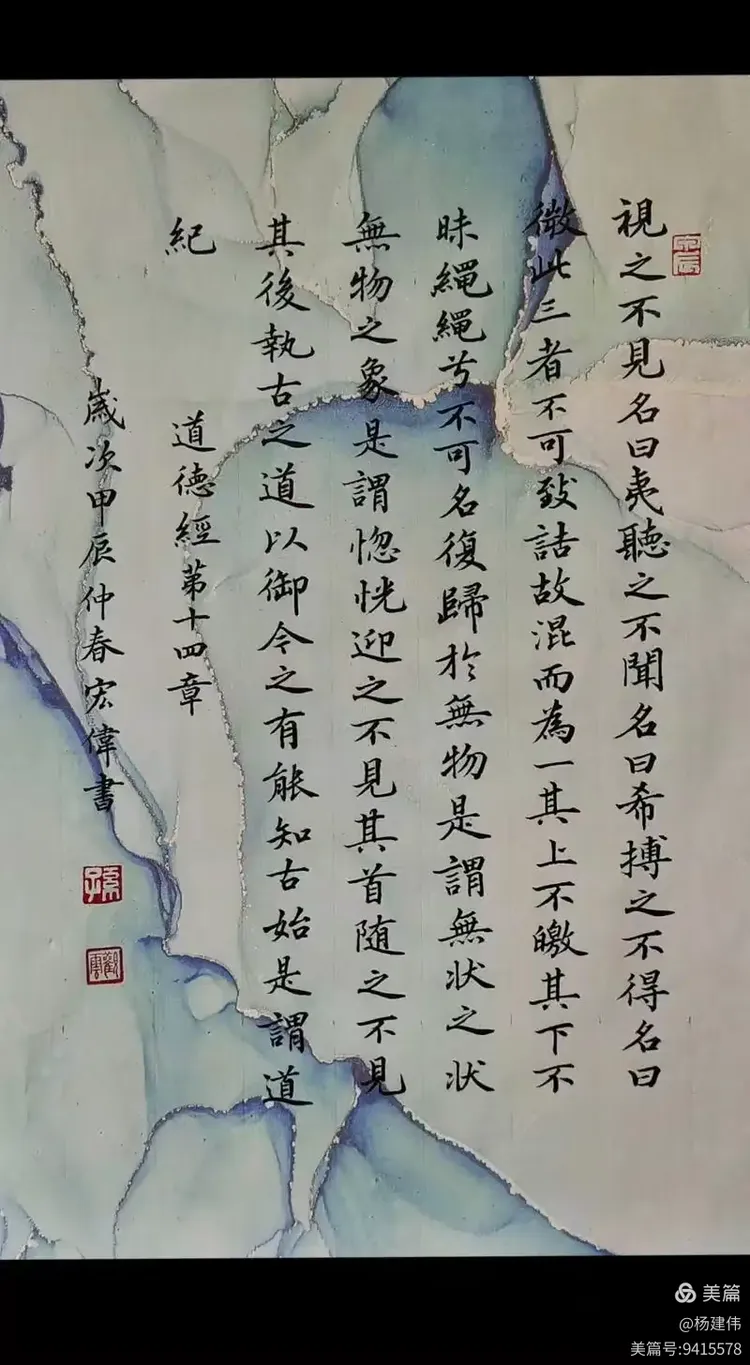 視之不見名曰夷聽之不聞名曰希搏之不得名曰
微此三者不可致詰故混而為一其上不皦其下不
昧繩繩兮不可名復歸於無物是謂無狀之狀
無物之象是謂惚恍迎之不見其首随之不見
其後執古之道以御今之有能知古始是謂道
紀 道德經第十四章
歲次甲辰仲春宏偉書
孫
美篇
@杨建伟
美篇号:9415578